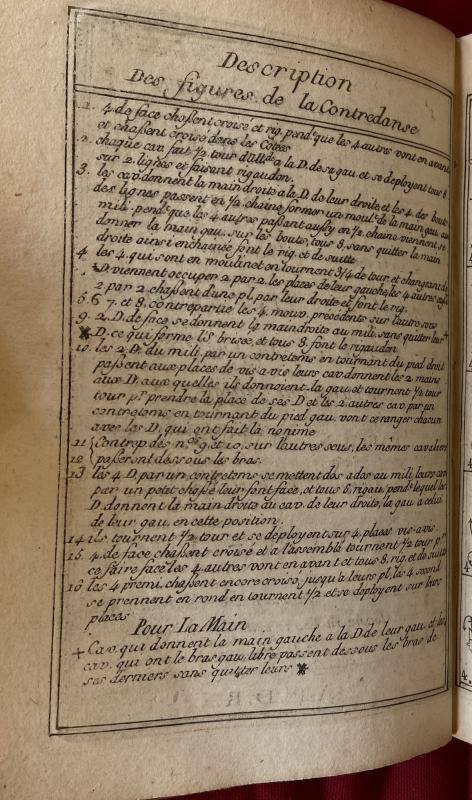 Description
Des figures de la Contredanse
1. 4 de face chassent croisé et rig. pend.t que les 4 autres vont en avant
et chassent croisé dans les Côtés
2. chaque cav. fait 1/2 tour d'Alld.e a la D. de sa gau. et se deployent tous 8
sur 2. lignes et faisant rigaudon.
3. les cav. donnent la main droite a la D. de leur droite et les 4. des bouts
des lignes passent en 1/2 chaine former un moul.t de la main gau. au
mili. pend.t que les 4 autres passant aussy en 1/2 chaine viennent se
donner la main gau. sur les bouts, tous 8 sans quitter la main
droite ainsi enchainée font le rig. et de suitte
4. les 4 qui sont en moulinet en tournent 3/4 de tour, et changeant de
D. viennent occuper 2 par 2. les places de leur gauche, les 4 autres
2 par 2 chassent d'une pl. par leur droite et font le rig.
5. 6 7. et 8. contrepartie les 4. mouv. précédents sur l'autre sous
9. 2. D. de face se donnent la main droite au mili. sans quitter leur
D. ce qui forme l'S brisée, et tous 8. font le rigaudon
10. les 2. D. du mili. par un contretems en tournant du pied droit
passent aux places de vis a vis leurs cav. donnent les 2. mains
aux D. aux quelles ils donnoient la gau. et tournent 1/2 tour
tour p.r prendre la place de ses D. et les 2. autres cav. par un
contretems en tournant du pied gau. vont ce ranger chacun
avec les D. qui ont fait la
11 Contrep. des n.os 9. et 10. sur l'autres sous, les mêmes cavaliers
12 passeront dessous les bras.
13 les 4 D. par un contretems se mettent dos a dos au mili. leurs cav.
par un petit chassé leur font face, et tous 8. rigau. pend.t lequel les
D. donnent la main droite au cav. de leur droite, la gau. a celui
de leur gau. en cette position
14 ils tournent 1/2 tour et se deployent sur 4. places vis-a-vis
15. 4. de face chassent croisé et a l'assemblé tournent 1/2 tour p.r
ce faire face les 4. autres vont en avant et tous 8. rig. et de suitte
16 les 4 premi. chassent encore croisé, jusqu'a leurs pl. les 4 second
se prennent en rond en tournent 1/2 et se deployent sur leurs
places
Pour La Main
+ Cav. qui donnent la main gauche a la D. de leur gau. et les
cav. qui ont le bras gau. libre passent dessous les bras de
ses derniers sans quitter leurs